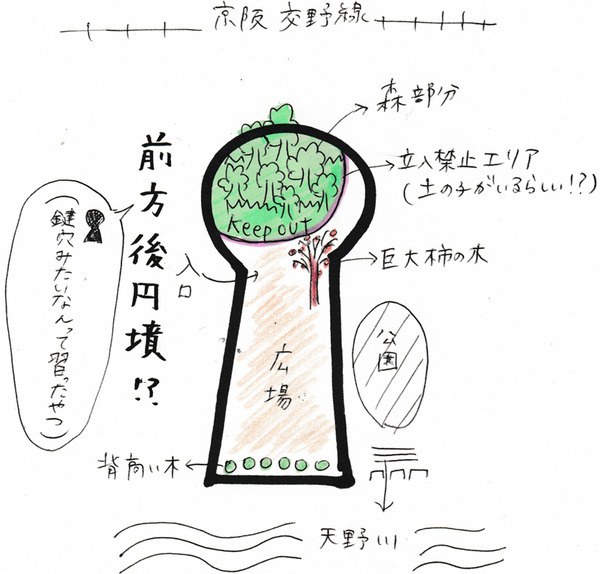 京阪 交野線
森部分
立入禁止エリア
(土の子がいるらしい!?)
Keep out
巨大柿の木
入口
前方後円墳!?
(鍵穴みたいなんって習ったやつ)
広場
公園
背高い木
天野川